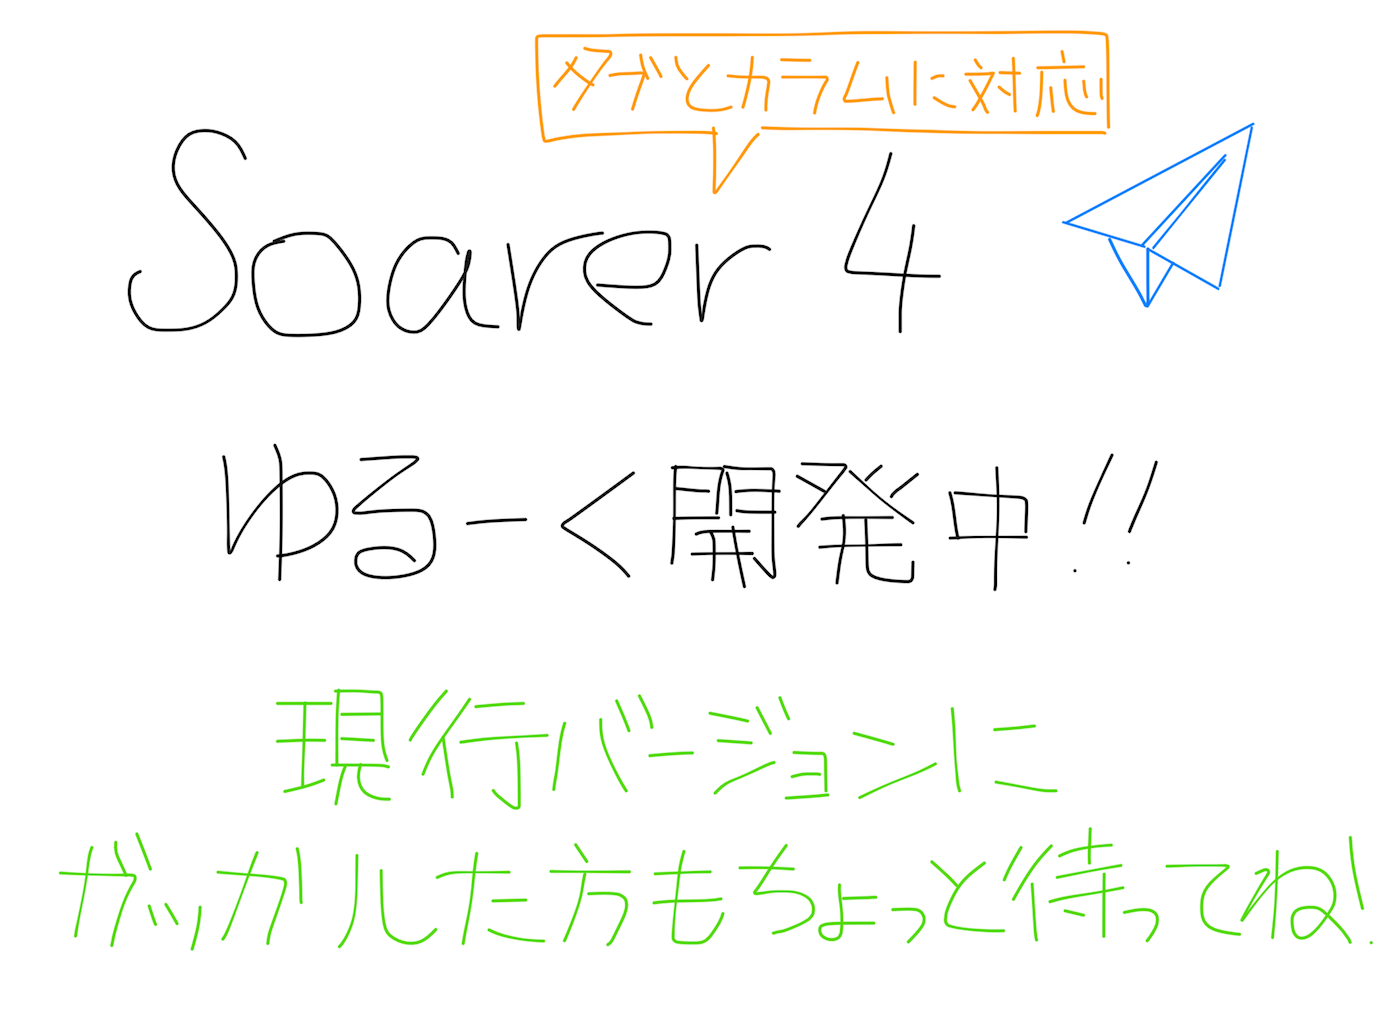 タブとカラムに対応
Soarer 4
ゆるーく開発中!!
現行バージョンに
ガッカリした方もちょっと待ってね!